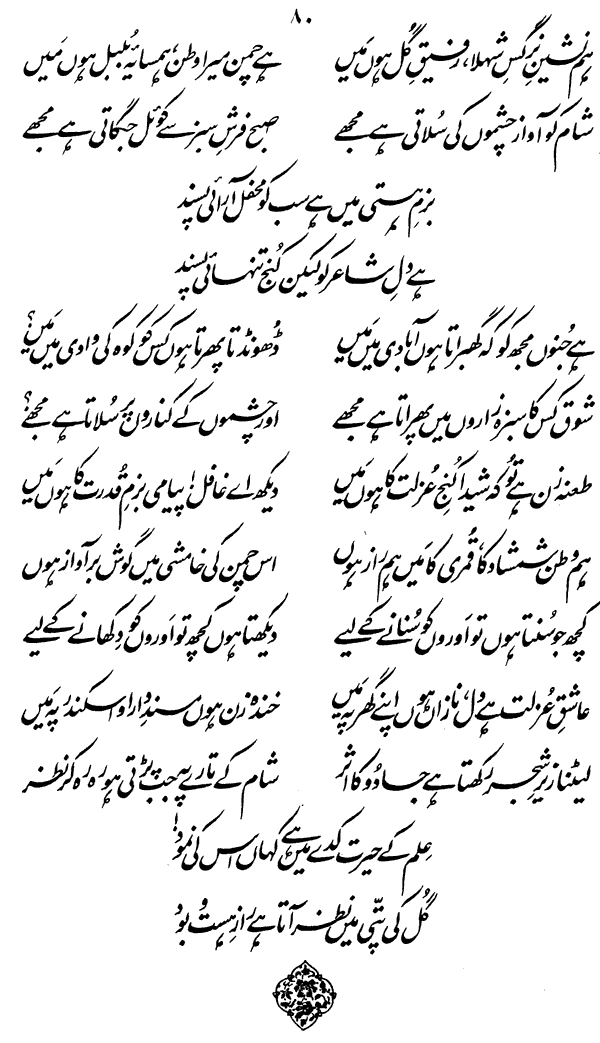 ۸۰
ہم نشینِ نرگسِ شہلا، رفیقِ گُل ہوں مَیں ہے چمن میرا وطن، ہمسایۂ بُلبل ہوں مَیں
شام کو آواز چشموں کی سُلاتی ہے مجھے صبح فرشِ سبز سے کوئل جگاتی ہے مجھے
بزمِ ہستی میں ہے سب کو محفل آرائی پسند
ہے دلِ شاعر کو لیکن کُنجِ تنہائی پسند
ہے جُنوں مجھ کو کہ گھبراتا ہوں آبادی میں مَیں ڈُھونڈتا پھرتا ہوں کس کو کوہ کی وادی میں مَیں؟
شوق کس کا سبزہ زاروں میں پھراتا ہے مجھے اور چشموں کے کناروں پر سُلاتا ہے مجھے؟
طعنہ زن ہے تُو کہ شیدا کُنجِ عُزلت کا ہوں مَیں دیکھ اے غافل! پیامی بزمِ قُدرت کا ہوں مَیں
ہم وطن شمشاد کا، قُمری کا مَیں ہم راز ہوں اس چمن کی خامشی میں گوش بر آواز ہوں
کچھ جو سُنتا ہوں تو اَوروں کو سُنانے کے لیے دیکھتا ہوں کچھ تو اَوروں کو دِکھانے کے لیے
عاشقِ عُزلت ہے دل، نازاں ہوں اپنے گھر پہ مَیں خندہ زن ہوں مسندِ دارا و اسکندر پہ مَیں
لیٹنا زیرِ شجر رکھتا ہے جادُو کا اثر شام کے تارے پہ جب پڑتی ہو رہ رہ کر نظر
عِلم کے حیرت کدے میں ہے کہاں اس کی نمود!
گُل کی پتّی میں نظر آتا ہے رازِ ہست و بود